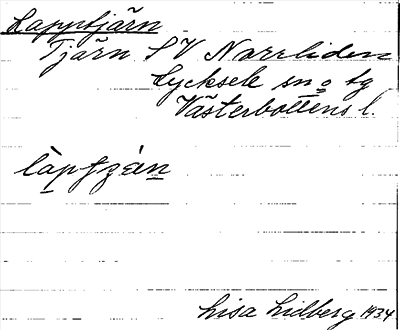 Lapptjärn
Tjärn S V Norrliden
Lycksele sn o tg
Västerbottens l.
Lisa Lidberg 1934